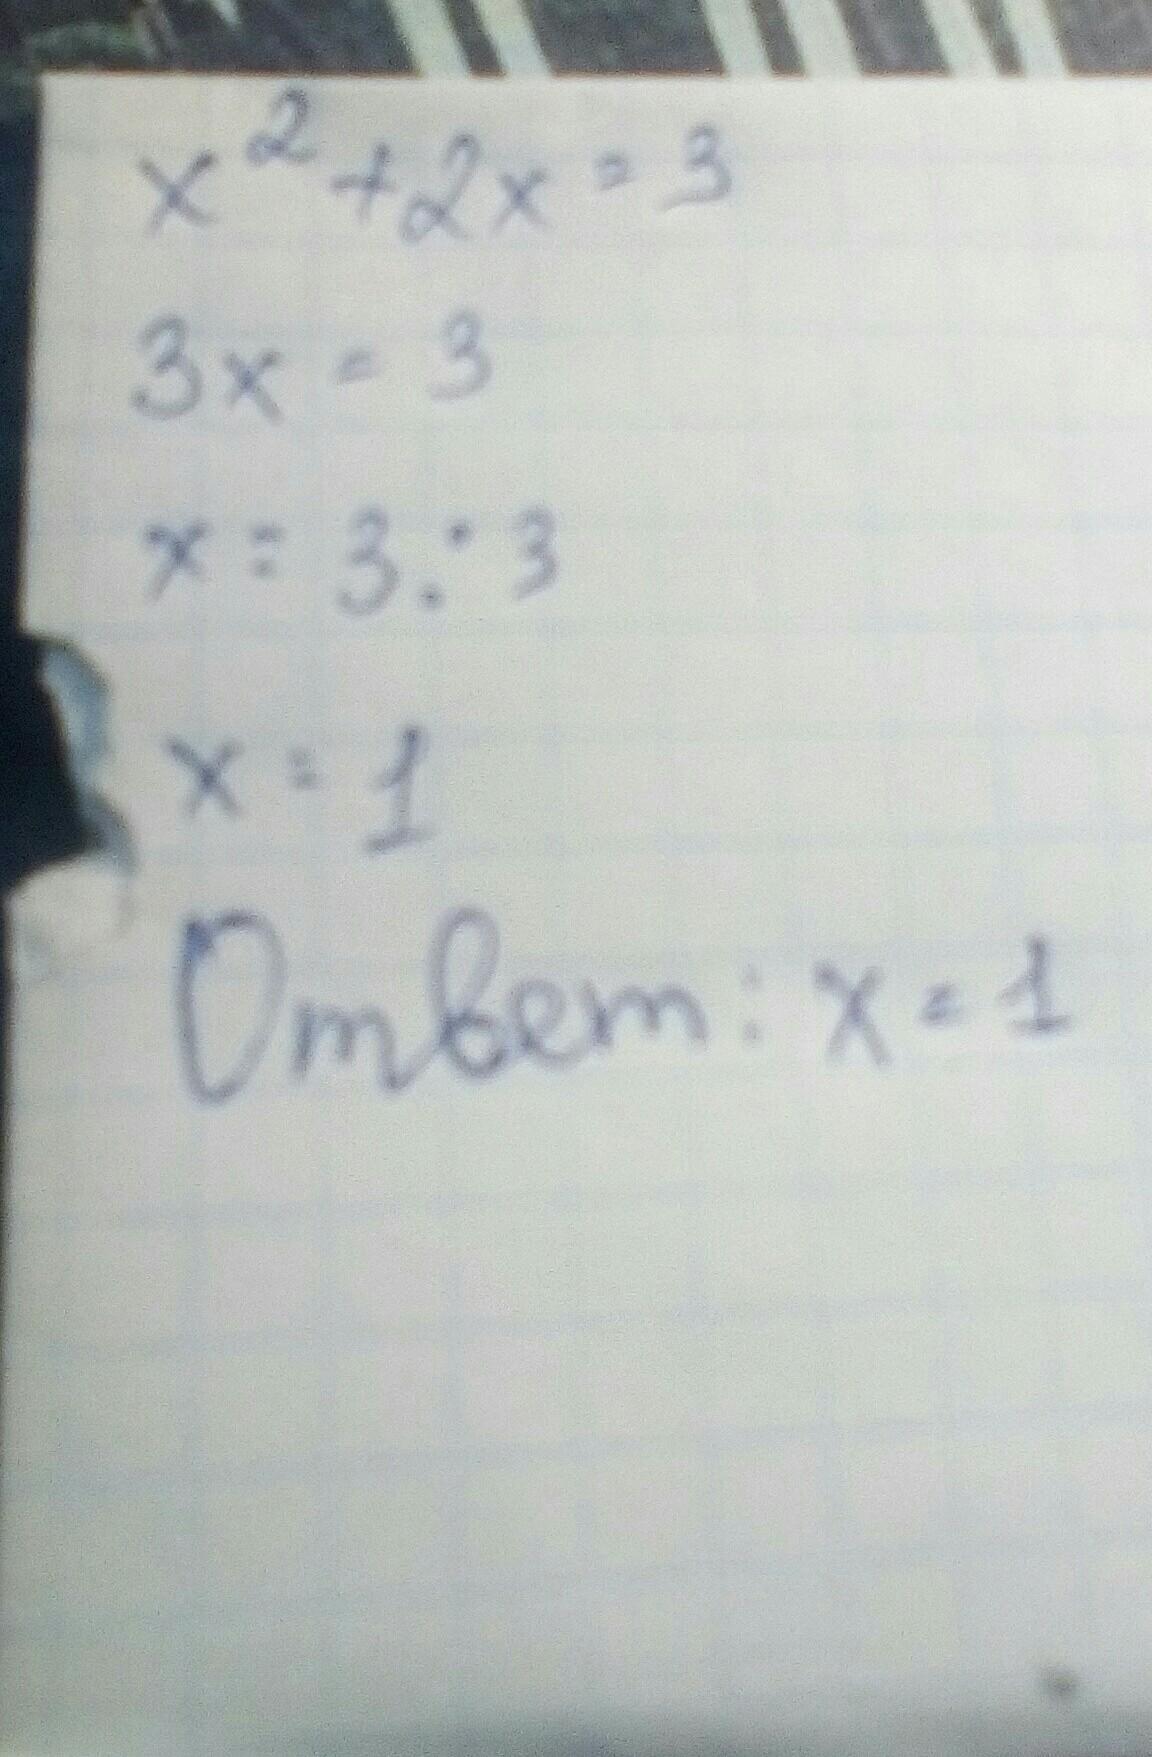 x² + 2x = 3
3x = 3
x = 3 : 3
x = 1
Ответ: x = 1